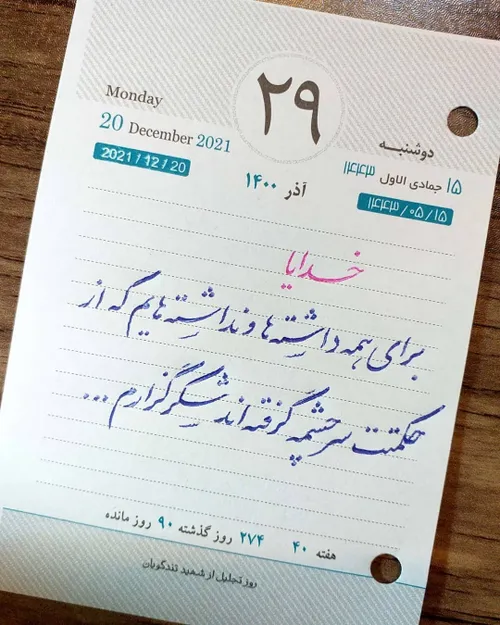 Monday
20 December 2021
2021/12/20
۲۹
آذر ۱۴۰۰
دوشنبه
۱۵ جمادی الاول ۱۴۴۳
۱۴۴۳/۰۵/۱۵
خدایا
برای همه داشته‌ها و نداشته‌هایم که از
حکمتت سرچشمه گرفته‌اند شکرگزارم ...
هفته ۴۰ ۲۷۴ روز گذشته ۹۰ روز مانده
روز تجلیل از شهید تندگویان